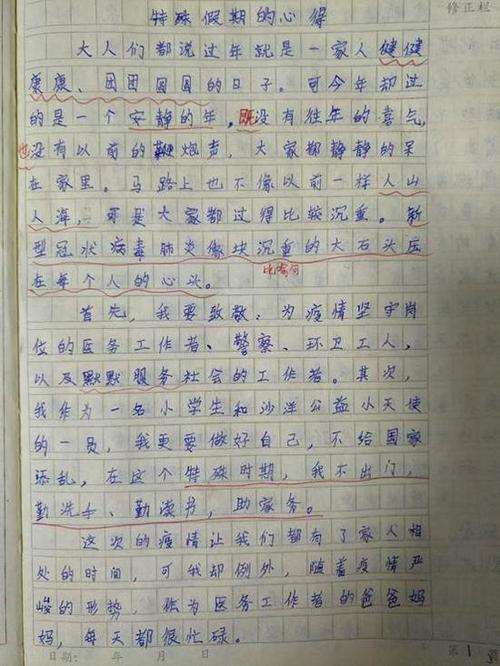 特殊假期的心得
修正栏
大人们都说过年就是一家人健健
康康、团团圆圆的日子。可今年却过
的是一个安静的年。既没有往年的喜气,
也没有以前的鞭炮声,大家都静静的呆
在家里。马路上也不像以前一样人山
人海,可是大家都过得比较沉重。新
型冠状病毒肺炎像块沉重的大石头压
在每个人的心头。
比喻句
首先,我要致敬:为疫情坚守岗
位的医务工作者、警察、环卫工人,
以及默默服务社会的工作者。其次,
我作为一名小学生和沙洋公益小天使
的一员,我更要做好自己,不给国家
添乱,在这个特殊时期,我不出门,
勤洗手、勤读书,助家务。
这次的疫情让我们都有了家人相
处的时间,可我却例外,随着疫情严
峻的形势,作为医务工作者的爸爸妈
妈,每天都很忙碌。
日期: 年 月 日
第1